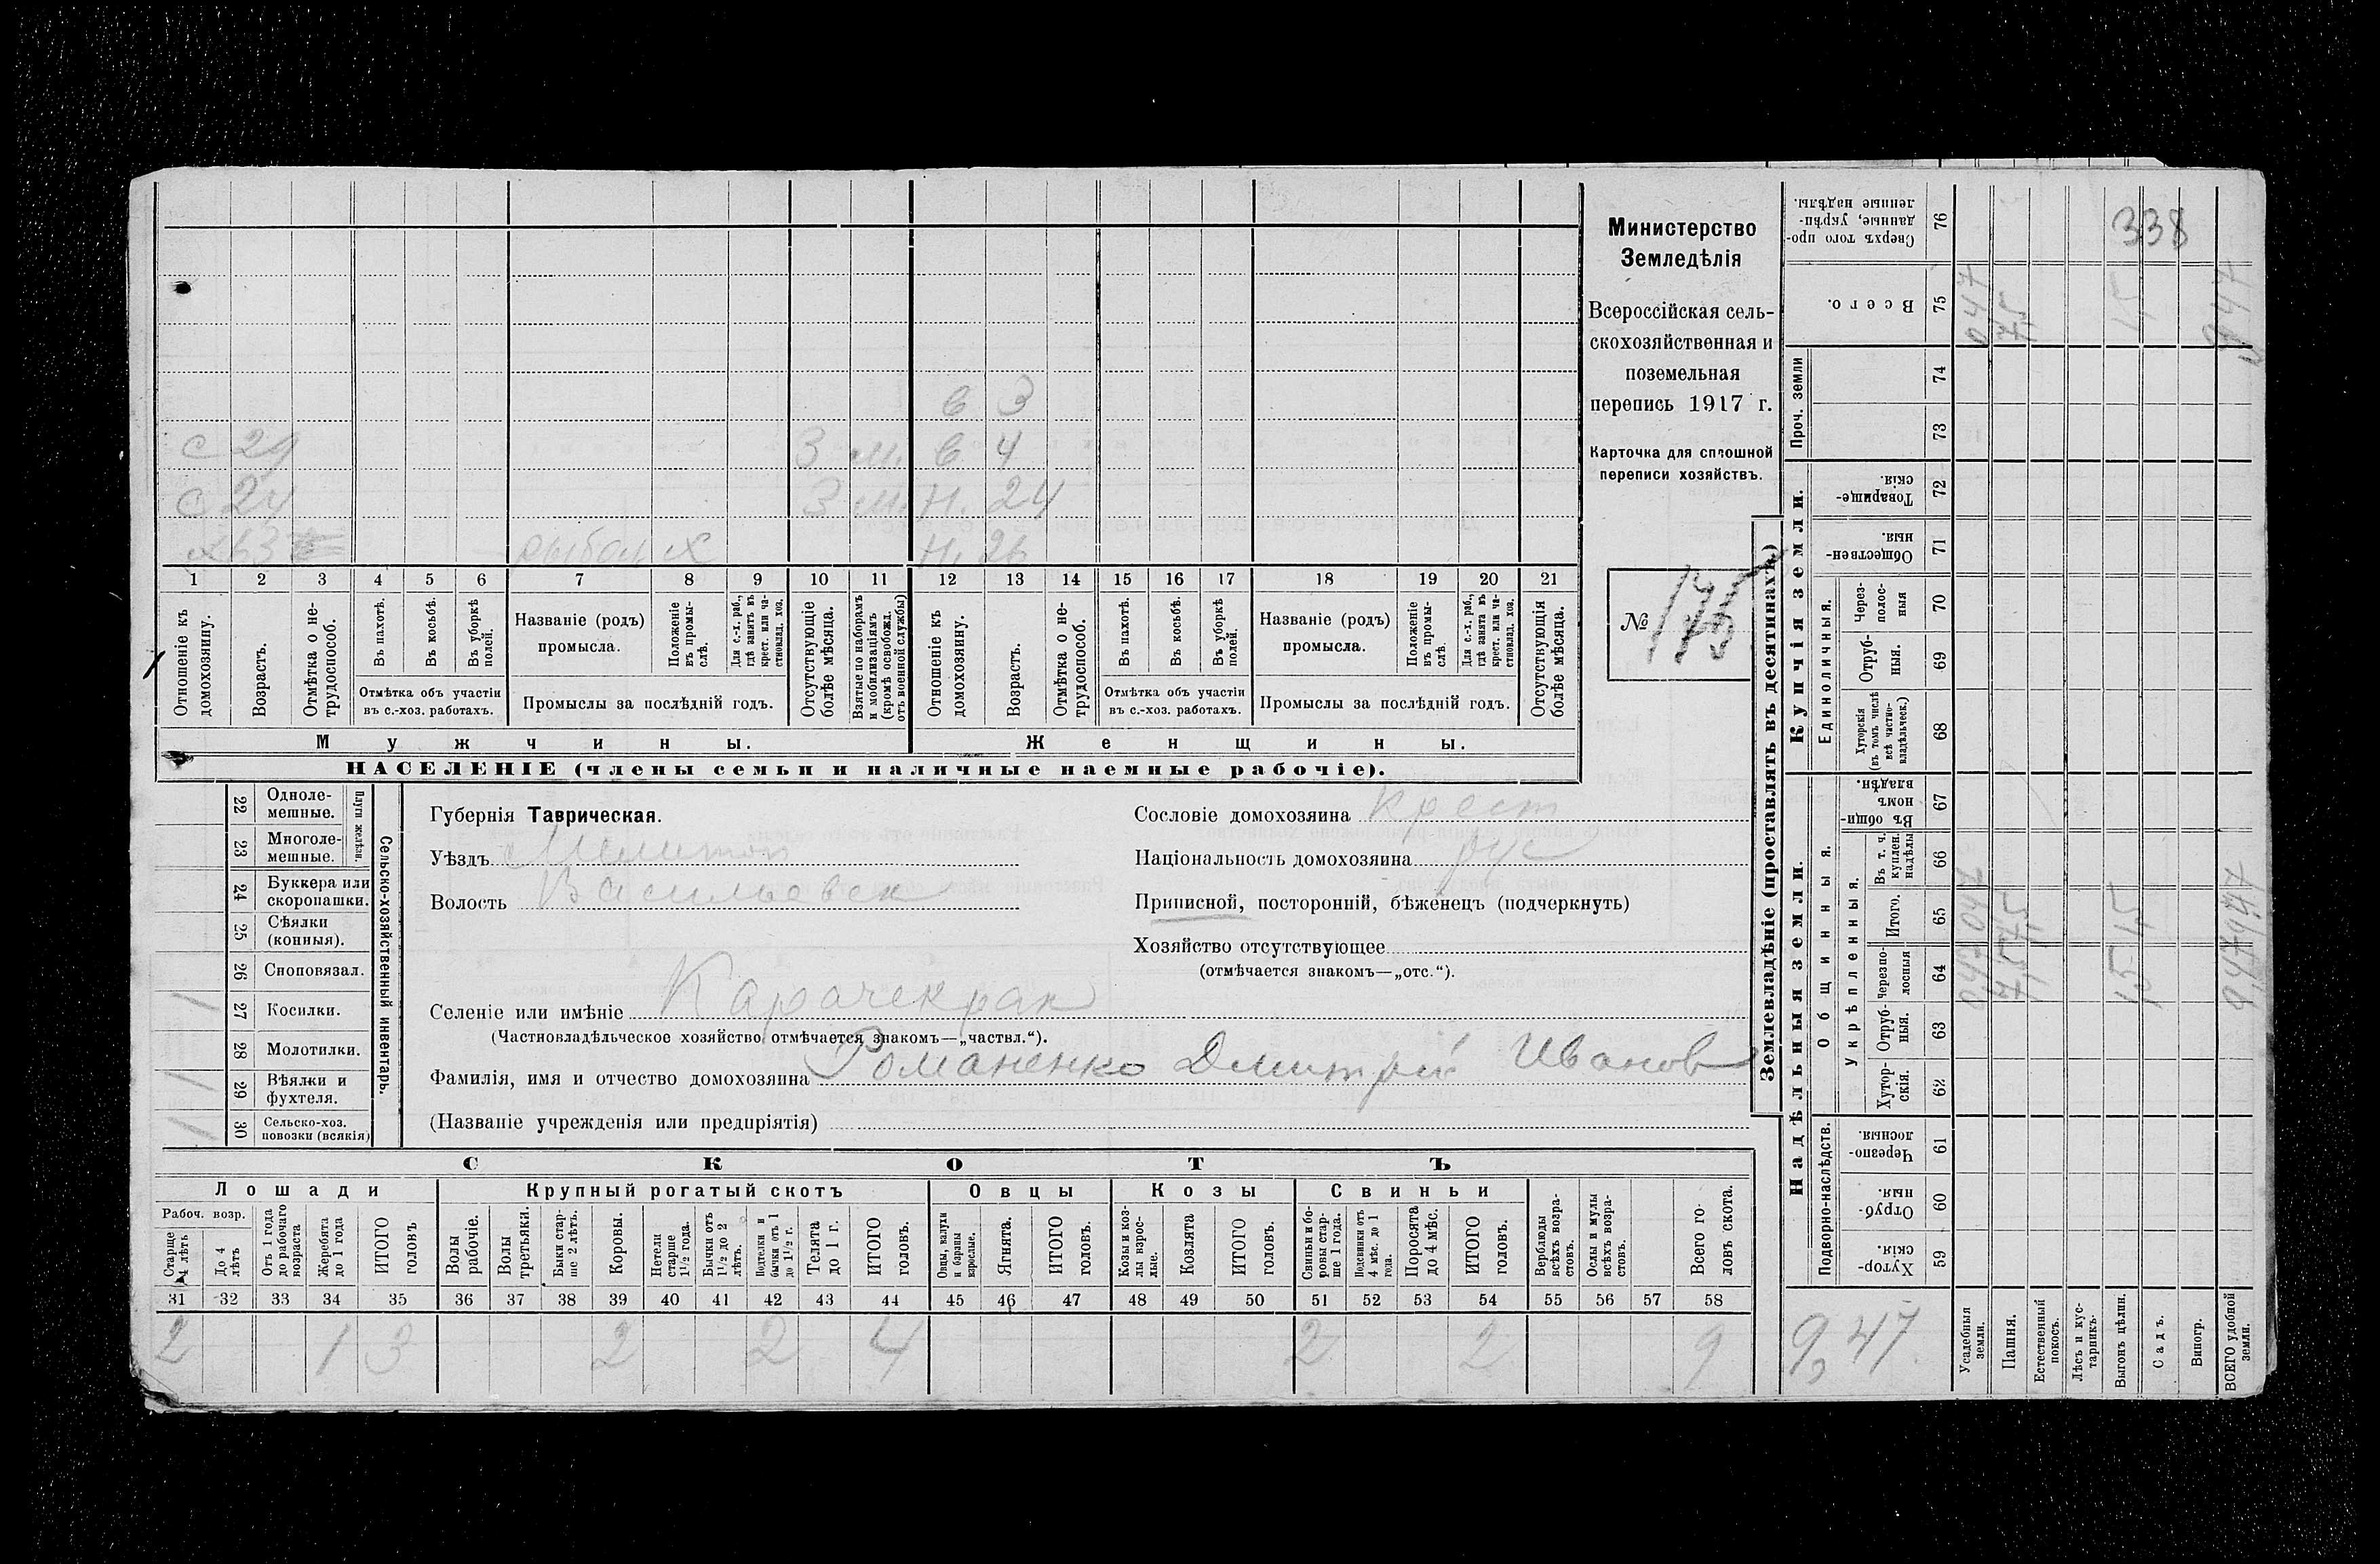 338
Министерство
Земледѣлія
Всероссійская сель-
скохозяйственная и
поземельная
перепись 1917 г.
Карточка для сплошной
переписи хозяйствъ.
№ 175
в 3
с 29 3 м. в 4
с 24 3 м. н. 24
х 63 рыбол х н. 26
1 2 3 4 5 6 7 8 9 10 11 12 13 14 15 16 17 18 19 20 21
Отношеніе къ домохозяину.
Возрастъ.
Отмѣтка о не-трудоспособ.
Въ пахотѣ.
Въ косьбѣ.
Въ уборкѣ полей.
Отмѣтка объ участіи
въ с.-хоз. работахъ.
Названіе (родъ)
промысла.
Положеніе въ промы-слѣ.
Для с.-х. раб., гдѣ занятъ въ крест. или ча-стновлад. хоз.
Промыслы за послѣдній годъ.
Отсутствующіе болѣе мѣсяца.
Взятые по наборамъ и мобилизаціямъ (кромѣ освобожд. отъ военной службы)
Отношеніе къ домохозяину.
Возрастъ.
Отмѣтка о не-трудоспособ.
Въ пахотѣ.
Въ косьбѣ.
Въ уборкѣ полей.
Отмѣтка объ участіи
въ с.-хоз. работахъ.
Названіе (родъ)
промысла.
Положеніе въ промы-слѣ.
Для с.-х. раб., гдѣ занята въ крест. или ча-стновлад. хоз.
Промыслы за послѣдній годъ.
Отсутствующія болѣе мѣсяца.
Мужчины. Женщины.
НАСЕЛЕНІЕ (члены семьи и наличные наемные рабочіе).
Сельско-хозяйственный инвентарь.
Плуги желѣзн.
22 Однолемешные.
23 Многолемешные.
24 Буккера или скоропашки.
25 Сѣялки (конныя).
26 Сноповязал.
1 27 Косилки.
28 Молотилки.
1 29 Вѣялки и фухтеля.
1 30 Сельско-хоз. повозки (всякія)
Губернія Таврическая.
Уѣздъ Мелитоп
Волость Васильевск
Сословіе домохозяина крест
Національность домохозяина рус
Приписной, посторонній, бѣженецъ (подчеркнуть)
Хозяйство отсутствующее
(отмѣчается знакомъ—„отс.“).
Селеніе или имѣніе Карачекрак
(Частновладѣльческое хозяйство отмѣчается знакомъ—„частвл.“).
Фамилія, имя и отчество домохозяина Романенко Дмитрій Иванов
(Названіе учрежденія или предпріятія)
СКОТЪ
Лошади Крупный рогатый скотъ Овцы Козы Свиньи
Рабоч. возр.
Старше 4 лѣтъ
До 4 лѣтъ
Отъ 1 года до рабочаго возраста
Жеребята до 1 года
ИТОГО головъ
Волы рабочіе.
Волы третьяки.
Быки стар-ше 2 лѣтъ.
Коровы.
Нетели старше 1½ года.
Бычки отъ 1½ до 2 лѣтъ.
Подтелки и бычки отъ 1 до 1½ г.
Телята до 1 г.
ИТОГО головъ.
Овцы, валухи и бараны взрослые.
Ягнята.
ИТОГО головъ.
Козы и коз-лы взрос-лые.
Козлята
ИТОГО головъ.
Свиньи и бо-ровы стар-ше 1 года.
Подсвинки отъ 4 мѣс. до 1 года.
Поросята до 4 мѣс.
ИТОГО головъ.
Верблюды всѣхъ возра-стовъ.
Ослы и мулы всѣхъ возра-стовъ.
Всего го-ловъ скота.
31 32 33 34 35 36 37 38 39 40 41 42 43 44 45 46 47 48 49 50 51 52 53 54 55 56 57 58
2 1 3 2 2 4 2 2 9
Землевладѣніе (проставлять въ десятинахъ)
Купчія земли.
Надѣльныя земли.
Сверхъ того про-данные, укрѣп-ленные надѣлы. 76
Всего. 75 0,47 7,5 1,5 9,47
Проч. земли 74
73
Товарище-скія. 72
Обществен-ныя. 71
Единоличныя.
Через-полос-ныя 70
Отруб-ныя. 69
Хуторскія (въ томъ числѣ всѣ частно-владѣльческ.) 68
Общинныя.
Въ общин-номъ владѣн. 67
Укрѣпленныя.
Въ т. ч. куплен. надѣлы 66
Итого. 65 0,47 7,5 1,5 9,47
Черезпо-лосныя 64 0,47 7,5 1,5 9,47
Отруб-ныя. 63
Хутор-скія. 62
Подворно-наслѣдств.
Черезпо-лосныя. 61
Отруб-ныя. 60
Хутор-скія. 59
9,47
Усадебныя земли.
Пашня.
Естественный покосъ.
Лѣсъ и кус-тарникъ.
Выгонъ цѣлин.
Садъ.
Виногр.
ВСЕГО удобной земли.